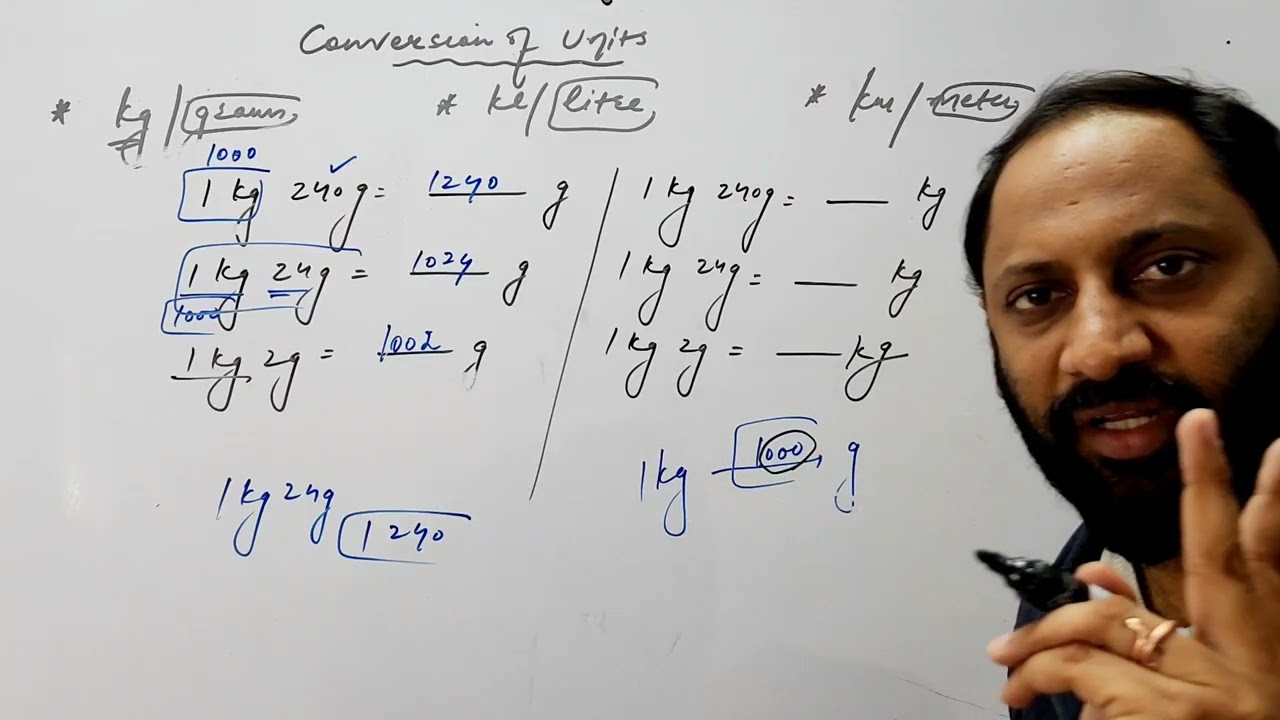 Conversion of Units
* kg/grams * kl/litre * km/meter
1000
1 kg 240g = 1240 g
1 kg 24g = 1024 g
1000
1 kg 2g = 1002 g
1 kg 24g
1240
1 kg 240g = kg
1 kg 24g = kg
1 kg 2g = kg
1kg 1000 g